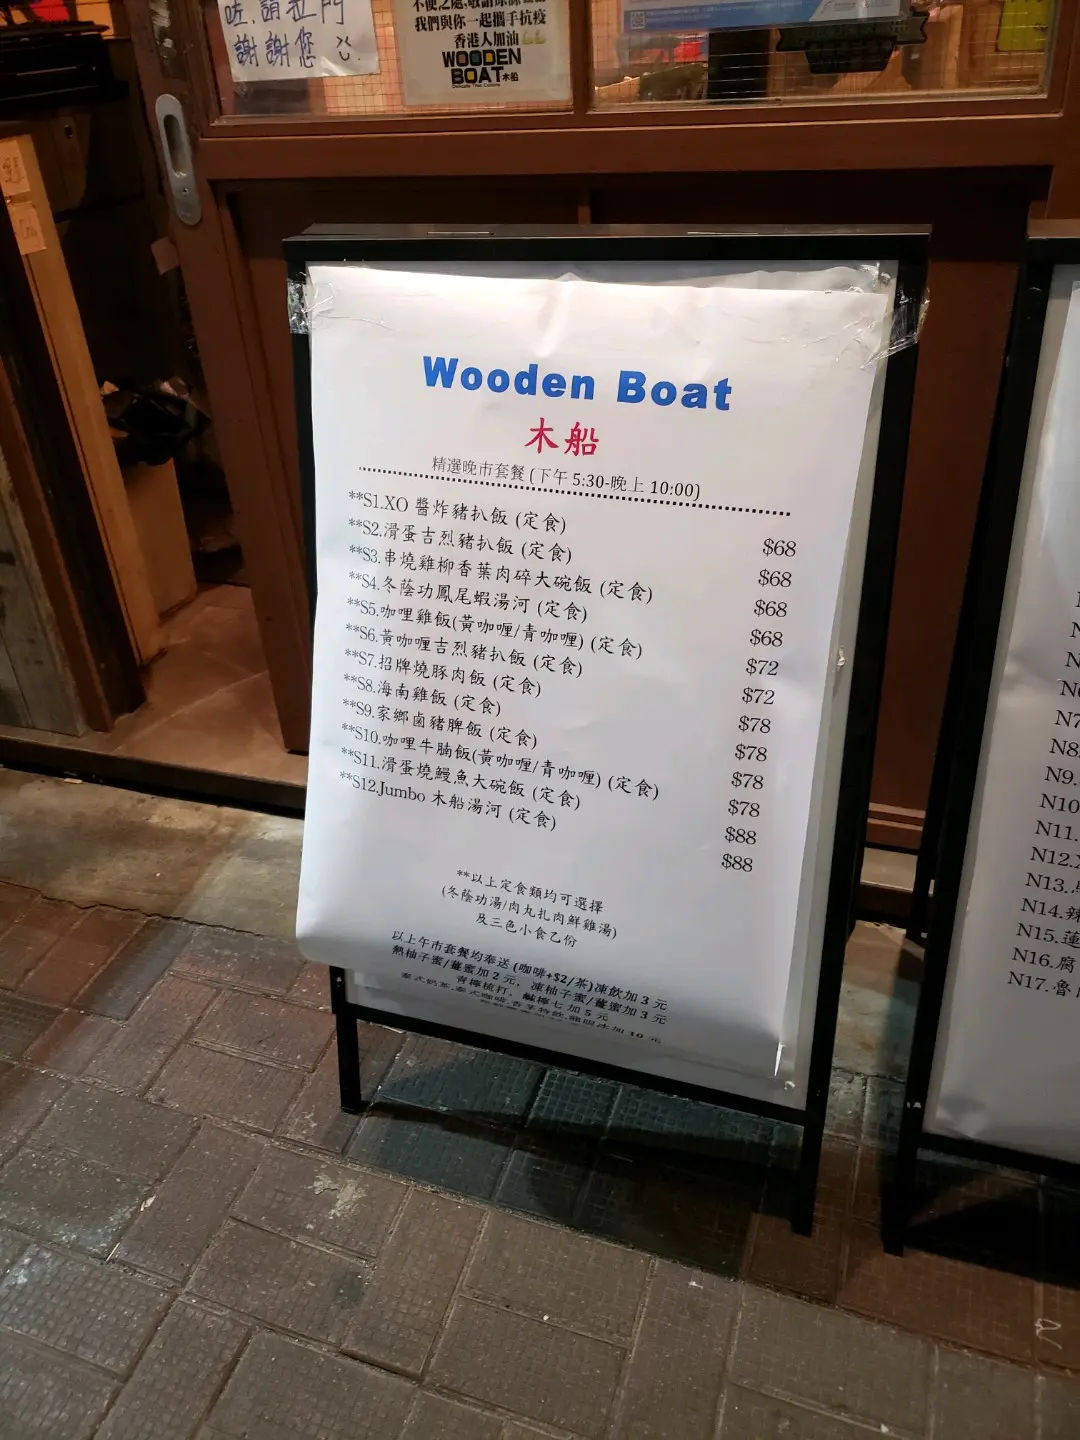 咗,請拉門
謝謝您
我們與你一起攜手抗疫
香港人加油
WOODEN
BOAT木船
Wooden Boat
木船
精選晚市套餐 (下午 5:30-晚上 10:00)
**S1.XO 醬炸豬扒飯 (定食) $68
**S2.滑蛋吉烈豬扒飯 (定食) $68
**S3.串燒雞柳香葉肉碎大碗飯 (定食) $68
**S4.冬蔭功鳳尾蝦湯河 (定食) $68
**S5.咖哩雞飯(黃咖喱/青咖喱) (定食) $72
**S6.黃咖喱吉烈豬扒飯 (定食) $72
**S7.招牌燒豚肉飯 (定食) $78
**S8.海南雞飯 (定食) $78
**S9.家鄉鹵豬脾飯 (定食) $78
**S10.咖哩牛腩飯(黃咖喱/青咖喱) (定食) $78
**S11.滑蛋燒鰻魚大碗飯 (定食) $88
**S12.Jumbo 木船湯河 (定食) $88
**以上定食類均可選擇
(冬蔭功湯/肉丸扎肉鮮雞湯)
及三色小食乙份
以上午市套餐均奉送 (咖啡+$2/茶)凍飲加 3 元
熱柚子蜜/薑蜜加 2 元, 凍柚子蜜/薑蜜加 3 元
青檸梳打, 鹹檸七 加 5 元
泰式奶茶,泰式咖啡,香茅特飲,龍眼冰加 10 元
N7
N8
N9.
N10
N11.
N12.
N13.
N14.辣
N15.蓮
N16.腐
N17.魯